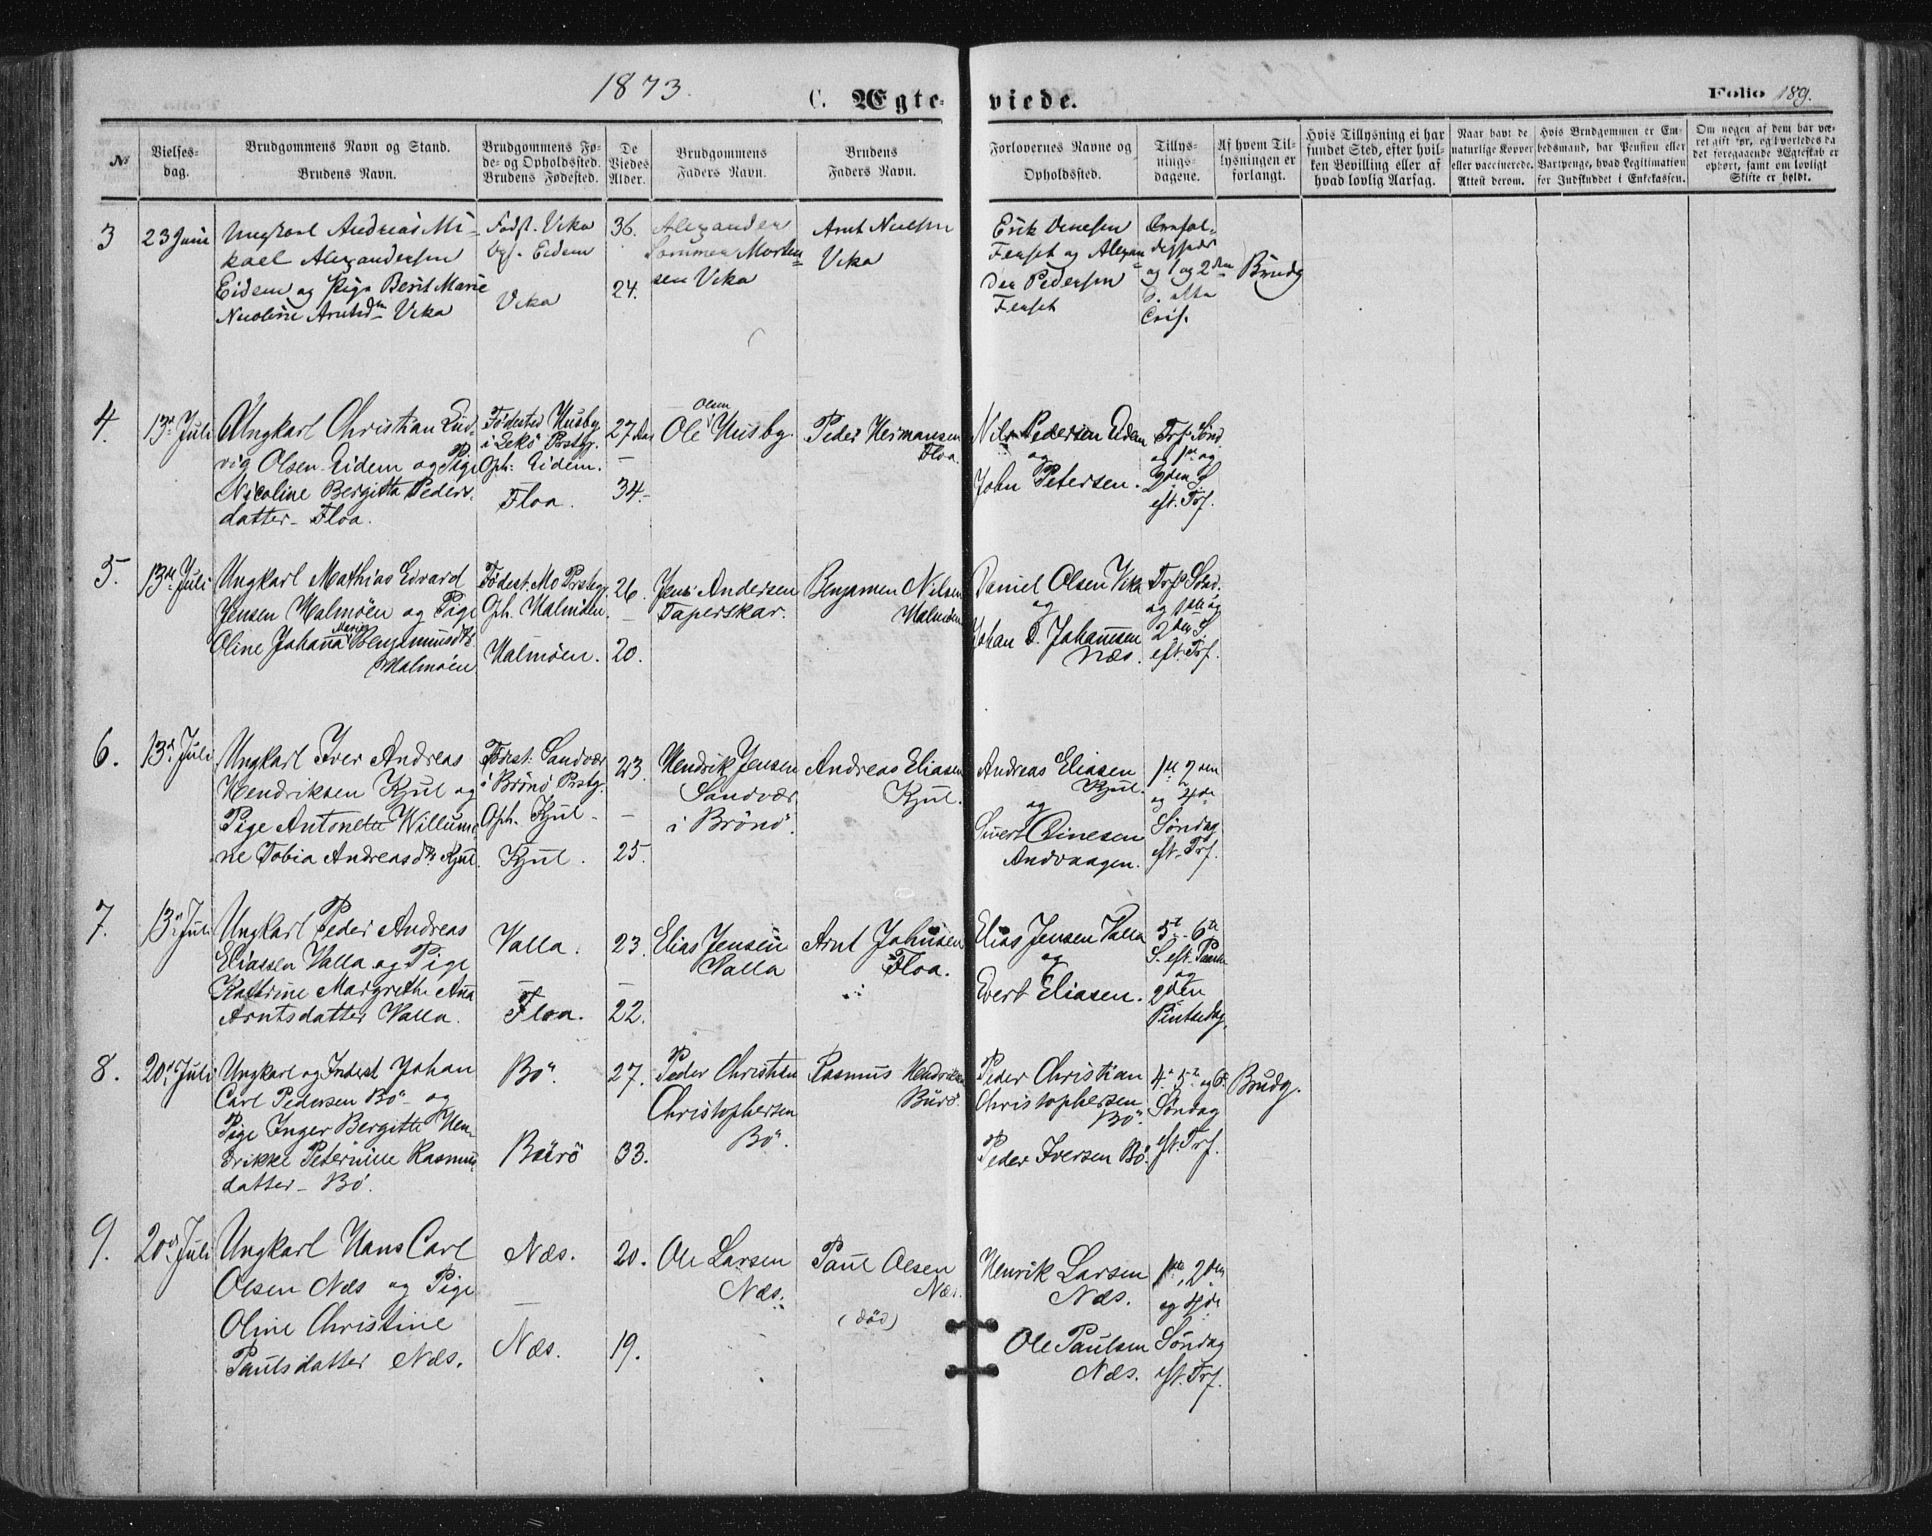 1873.
C. Ægteviede.
Folio 189.
№
Vielsesdag.
Brudgommens Navn og Stand.
Brudens Navn.
Brudgommens Føde- og Opholdsted.
Brudens Fødested.
De Viedes Alder.
Brudgommens Faders Navn.
Brudens Faders Navn.
Forlovernes Navne og Opholdsted.
Tillysningsdagene.
Af hvem Tillysningen er forlangt.
Hvis Tillysning ei har fundet Sted, efter hvilken Bevilling eller af hvad lovlig Aarsag.
Naar havt de naturlige Kopper eller vaccinerede. Attest derom.
Hvis Brudgommen er Embedsmand, har Pension eller Vartpenge, hvad Legitimation for Indskuddet i Enkekassen.
Om nogen af dem har været gift før, og hvorledes da det foregaaende Ægteskab er ophørt, samt om lovligt Skifte er holdt.
3
23 Juni
Ungkarl Andreas Mi-
kael Alexandersen
Eidem og Pige Berit Marie
Nicoline Arntsd. Vika
Fødst. Vika
Eidem
Vika
36.
24.
Alexander
Morten=
sen Vika
Arnt Nielsen
Vika
Erik
og Alexan=
der Pedersen
og 1 og 2den
Brudg
4.
13de Juli
Ungkarl Christian Lud-
vig Olsen Eidem og Pige
Nicoline Bergitta Peders-
datter - Floa.
Fødested Husby
i Lekø Prstg.
Oph: Eidem.
Floa.
27 Aar
—
34.
Olsen
Ole Husby.
Peder Hermansen
Floa.
Nils Pedersen Eidem
og
John Petersen.
Trf. Sønd.
og 1ste og
2den S.
eft. Trf.
5.
13de Juli
Ungkarl Mathias Edvard
Jensen Halmøen og Pige
Marie
Oline Johana Benjaminsdtr
Halmøen
Fødest. Mo Prstg.
Oph. Halmøen.
Halmøen.
26.
—
20.
Jens Andersen
Taperskar.
Benjamen Nilsen
Halmøen
Daniel Olsen Vika
og
Johan D. Johannsen
Næs.
Trf. Sønd.
og 1ste og
2den S.
eft. Trf.
6.
13de Juli
Ungkarl Iver Andreas
Hendriksen Kjul og
Pige Antonette Willum-
ne Tobia Andreasdtr Kjul.
Fødest: Sandvær
i Brønø Prstg.
Oph. Kjul -
Kjul.
23.
—
25.
Hendrik Jensen
Sandvær
i Brønø.
Andreas Eliasen
Kjul.
Andreas Eliasen
Kjul.
og
Sivert Dinesen
Andvaagen.
1ste 2den
og 4de
Søndag
eft. Trf.
7.
13de Juli
Ungkarl Peder Andreas
Eliassen Valla og Pige
Kathrine Margrethe Ana
Arntsdatter Valla.
Valla.
—
Floa.
23.
—
22.
Elias Jensen
Valla
Arnt Johnsen
Floa.
Elias Jensen Valla
og
Evert Eliasen.
5te 6te
S. eft. Paaske
og
2den
Pintsedag.
8.
20de Juli
Ungkarl og Inderst Johan
Carl Pedersen Bø - og
Pige Inger Bergitte Hen-
drikke Petermine Rasmus
datter - Bø.
Bø.
Burø
27.
33.
Peder Christian
Christophersen
Bø.
Rasmus Hendriksen
Burø.
Peder Christian
Christophersen
Bø.
Peder Iversen Bø.
4de 5te og 6te
Søndag
eft. Trf.
Brudg.
9.
20de Juli
Ungkarl Hans Carl
Olsen Næs og Pige
Oline Christine
Paulsdatter Næs.
Næs.
—
Næs.
20.
19.
Ole Larsen
Næs.
Paul Olsen
Næs.
(død)
Henrik Larsen
Næs.
Ole Paulsen
Næs.
1ste, 2den
og 4de
Søndag
eft. Trf.